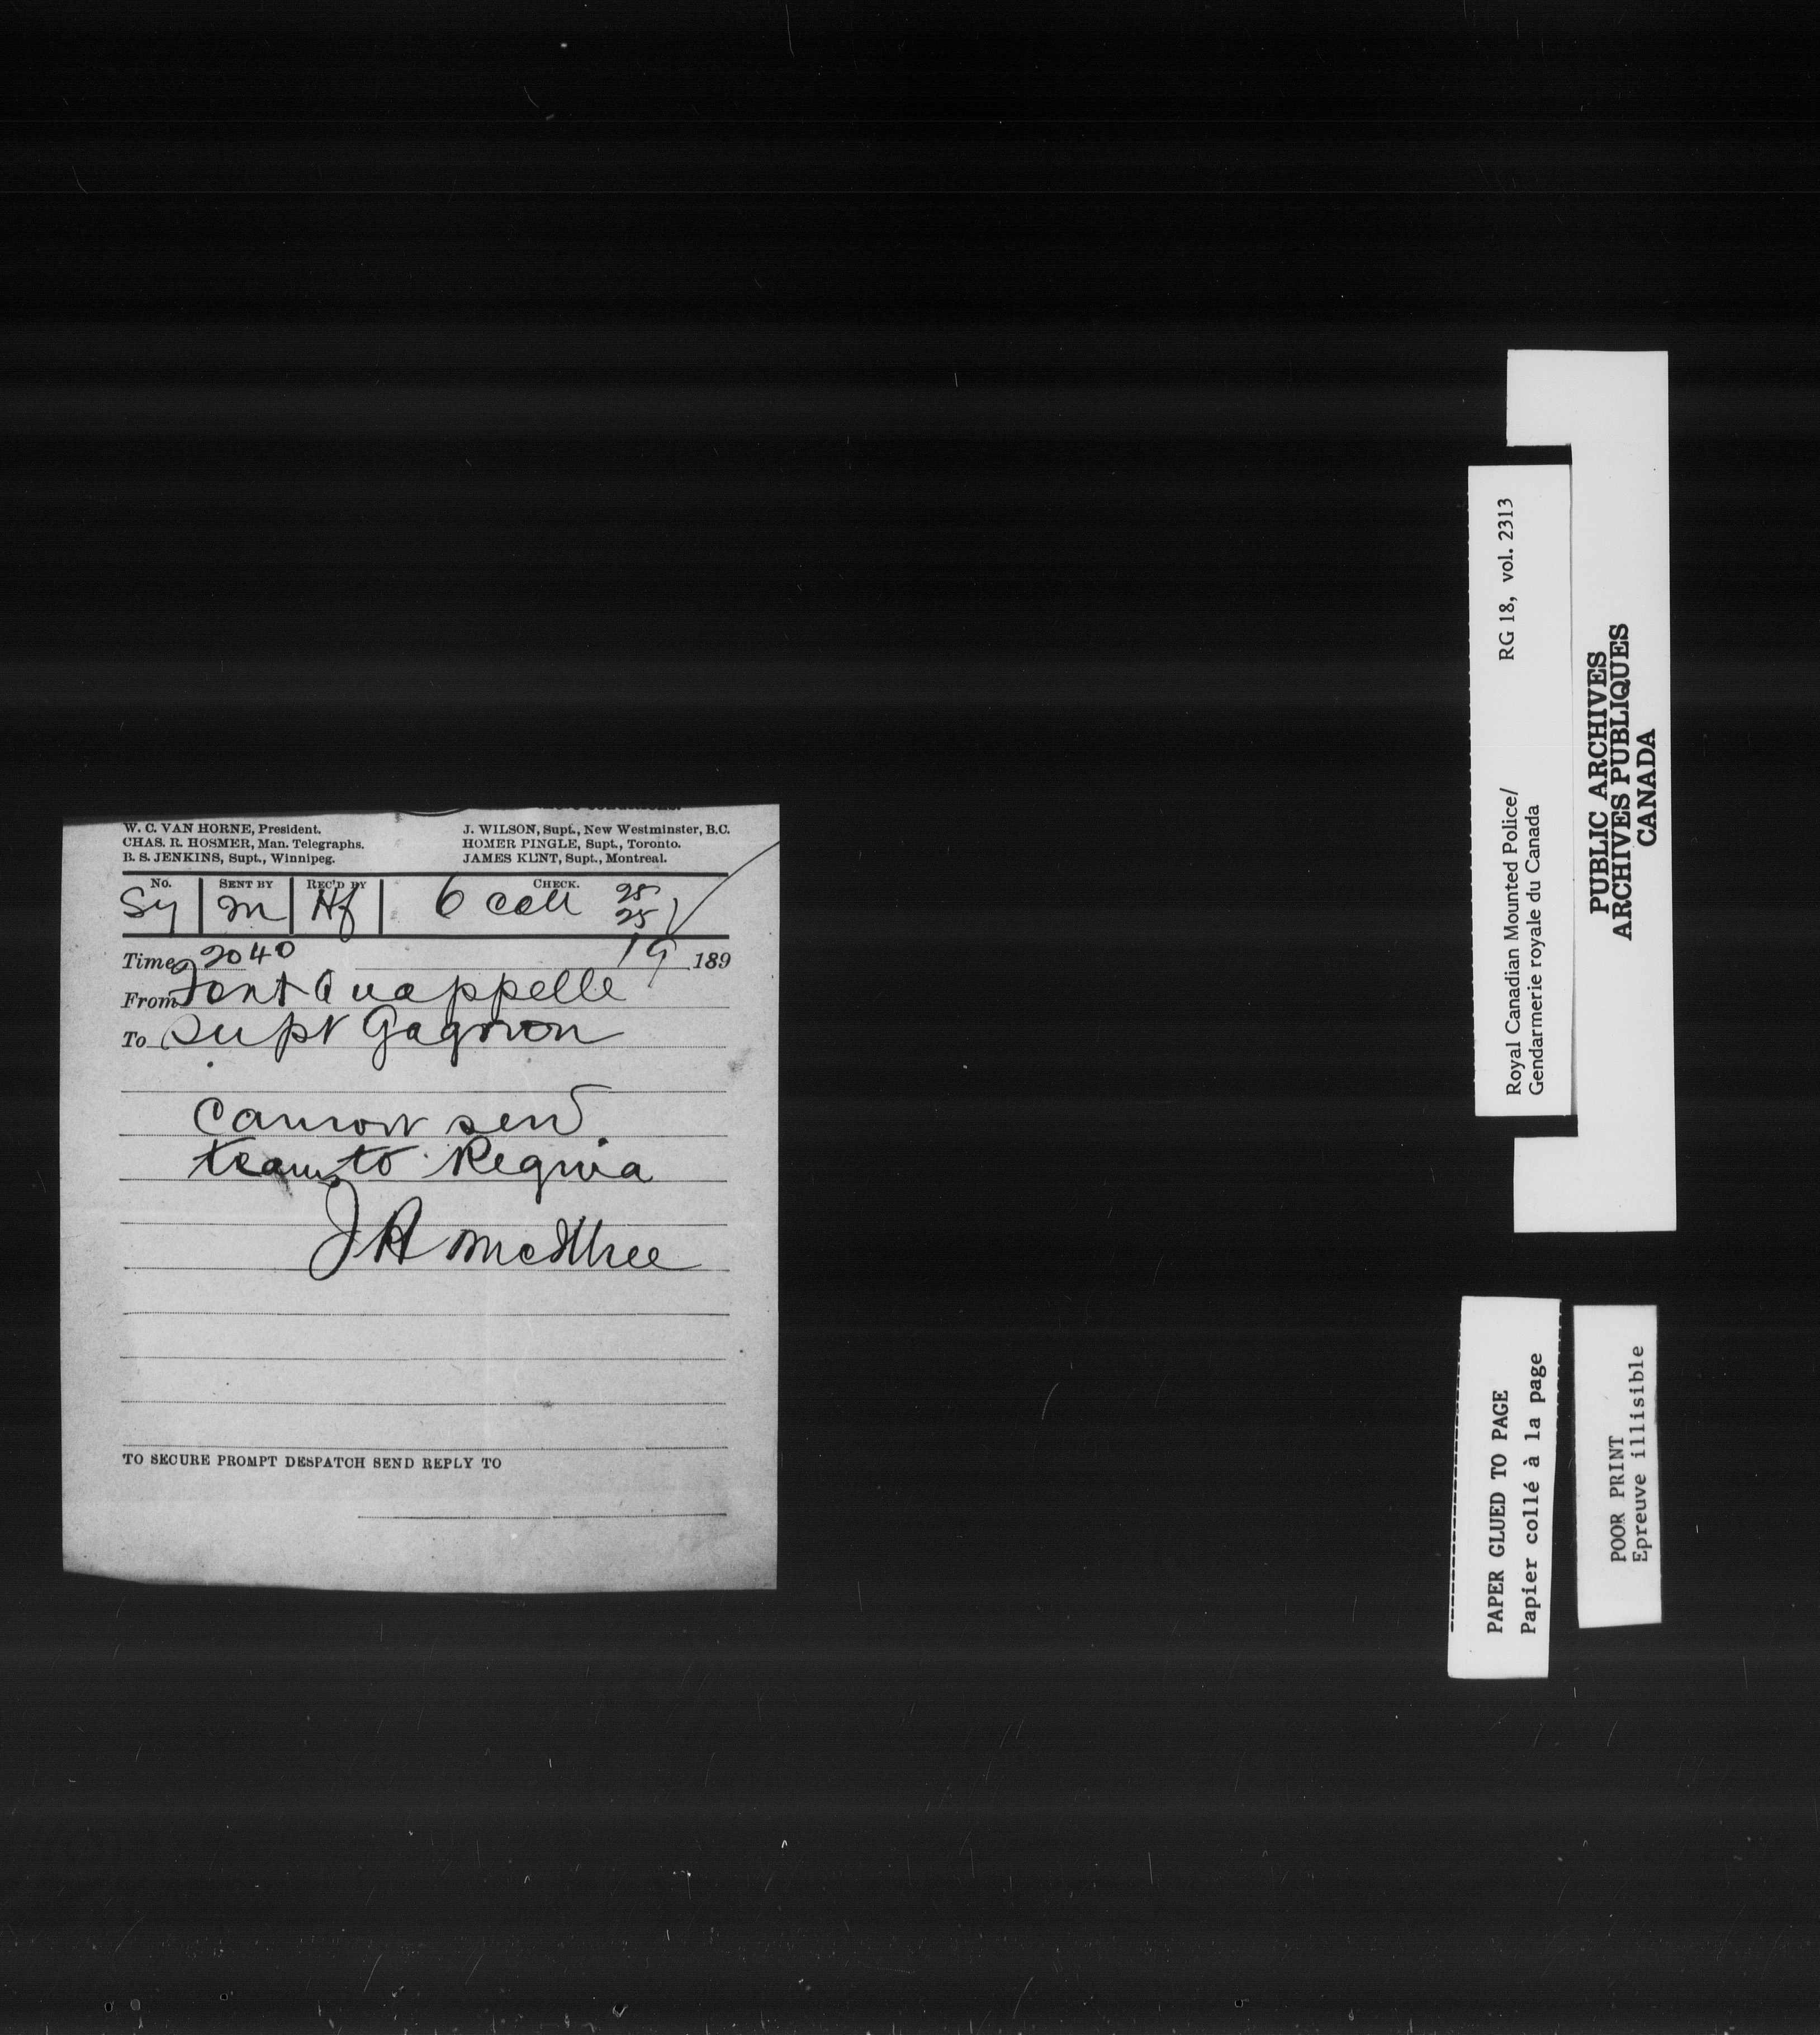 W. C. VAN HORNE, President.
CHAS. R. HOSMER, Man. Telegraphs.
B. S. JENKINS, Supt., Winnipeg.
J. WILSON, Supt., New Westminster, B.C.
HOMER PINGLE, Supt., Toronto.
JAMES KENT, Supt., Montreal.
No. SENT BY REC'D BY CHECK.
Sy m Hf 6 coll 25
25
Time 2040 19 189
From Fort Quappelle
To Supt Gagnon
Cannot send
team to Regina
J A McIlhree
TO SECURE PROMPT DESPATCH SEND REPLY TO
Royal Canadian Mounted Police/ RG 18, vol. 2313
Gendarmerie royale du Canada
PUBLIC ARCHIVES
ARCHIVES PUBLIQUES
CANADA
PAPER GLUED TO PAGE
Papier collé à la page
POOR PRINT
Epreuve illisible